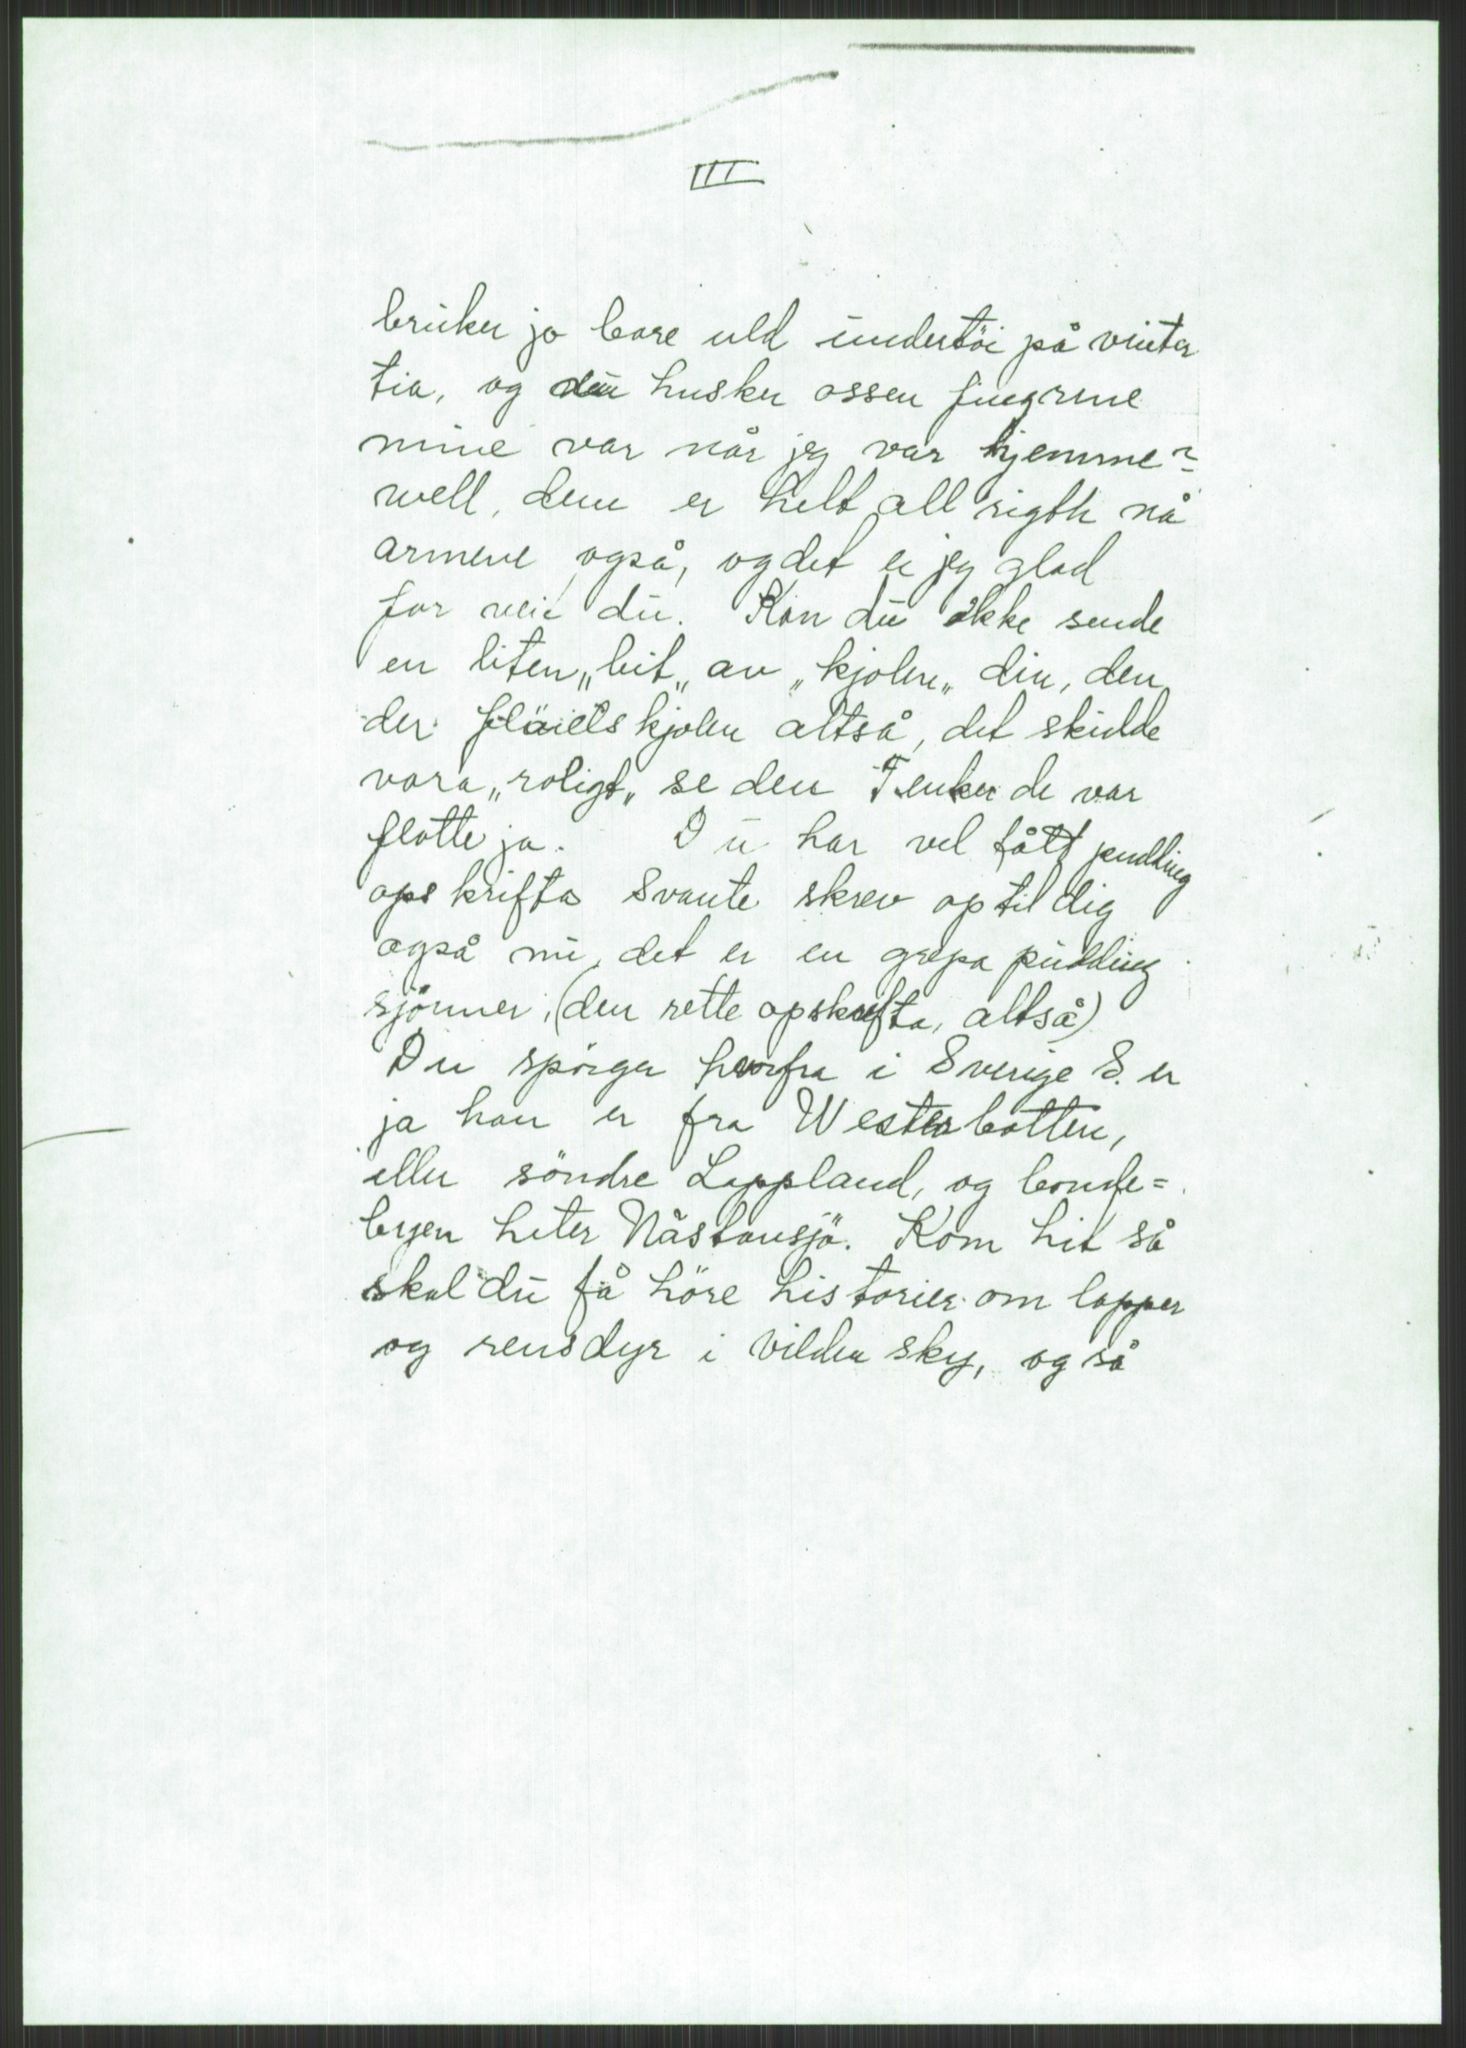 III
bruker jo bare uld undertöi på vinter
tia, og du husker ossen fingrene
mine var når jeg var hjemme?
well, dem er helt all rigth nå
armene også, og det er jeg glad
for vei du. Kan du ikke sende
en liten „bit„ av „kjolen„ din, den
der fløielskjolen altså, det skulde
vara „roligt„ se den Tenker de var
flotte ja. Du har vel fått pudding
opskrifta Svante skrev op til dig
også nu, det er en grepa pudding
sjönner, (den rette opskrifta, altså)
Du spörger hvorfra i Sverige S. er
ja han er fra Westerbotten,
eller söndre Lappland, og bonde=
byen heter Nåstansjö. Kom hit så
skal du få höre historier om lapper
og rensdyr i vilden sky, og så